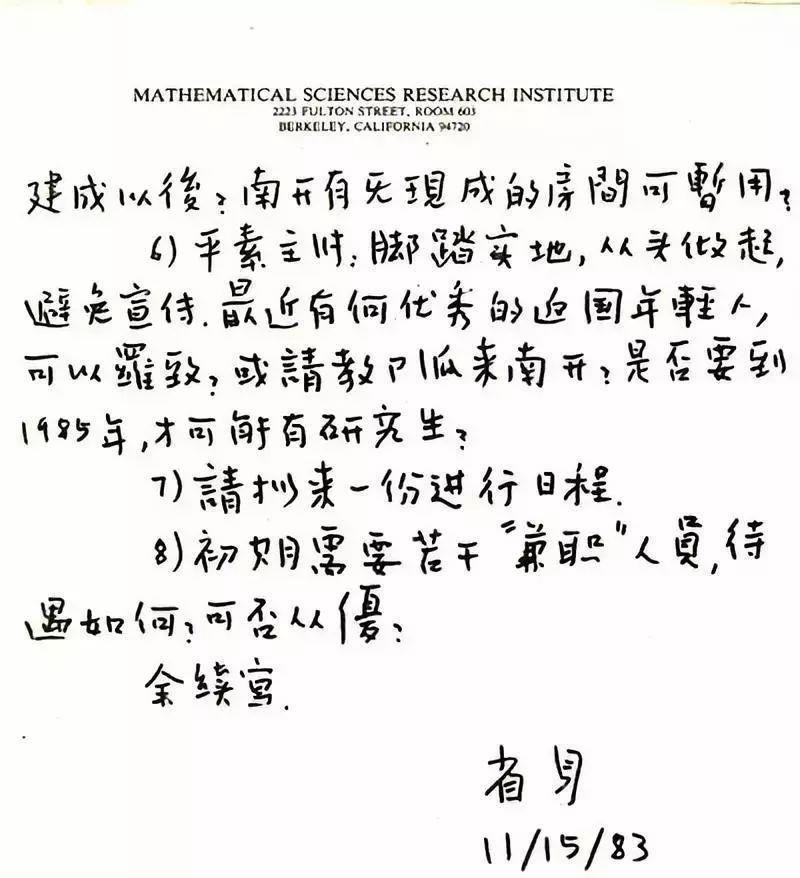 MATHEMATICAL SCIENCES RESEARCH INSTITUTE
2223 FULTON STREET, ROOM 603
BERKELEY, CALIFORNIA 94720
建成以後?南开有无現成的房間可暫用?
6) 平素主:脚踏实地,从头做起,
避免宣传.最近有何优秀的国年輕人,
可以羅致?或請教来南开?是否要到
1985年,才可能有研究生?
7) 請拟来一份进行日程.
8) 初期需要若干“兼职”人員,待
遇如何?可否从優?
余续寫.
省身
11/15/83